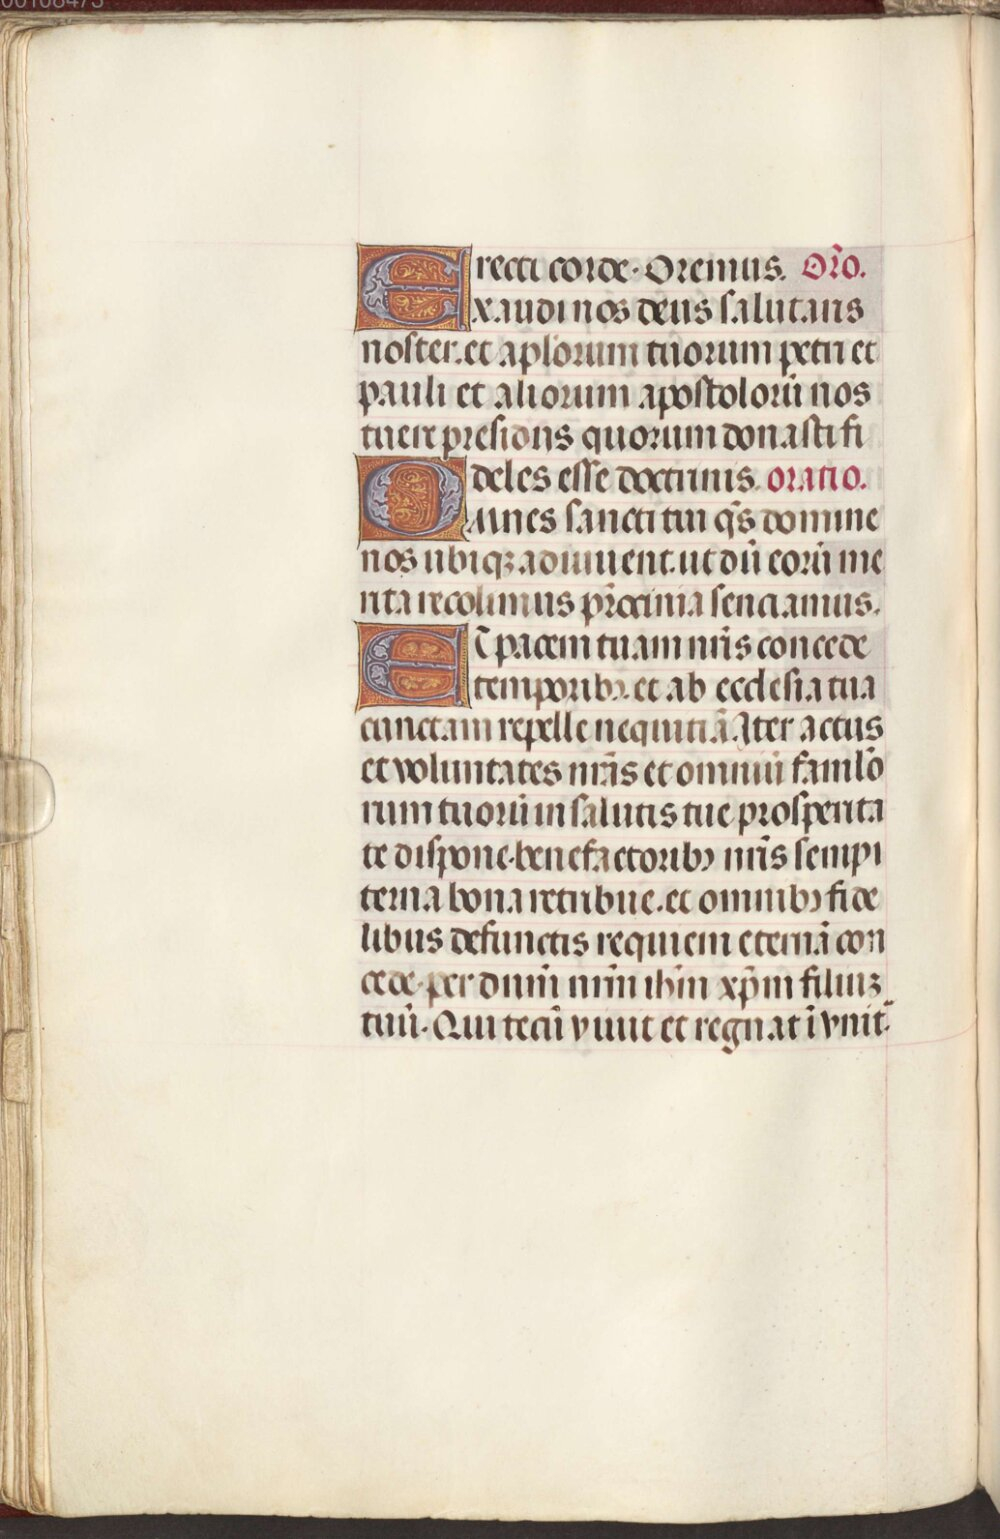 00108473
recti corde. Oremus. Or̃o.
Exaudi nos deus salutaris
noster. et apl̃orum tuorum petri et
pauli et aliorum apostolorũ nos
tuere presidiis quorum donasti fi
deles esse doctrinis. oratio.
Omnes sancti tui q̃s domine
nos ubiqꝫ adiuuent. ut dũ eorũ me
rita recolimus pr̃ocinia senciamus.
Et̃ pacem tuam nr̃is concede
temporibꝰ. et ab ecclesia tua
cunctam repelle nequitiã. Iter actus
et voluntates nr̃as et omniũ famlõ
rum tuorũ in salutis tue prosperita
te dispone. benefactoribꝰ nr̃is sempi
terna bona retribue. et omnibꝰ fide
libus defunctis requiem eternã con
cede. per dnm̃ nrm̃ ihm̃ xp̃m filiuꝫ
tuũ. Qui tecũ viuit et regnat ĩ vnit̃